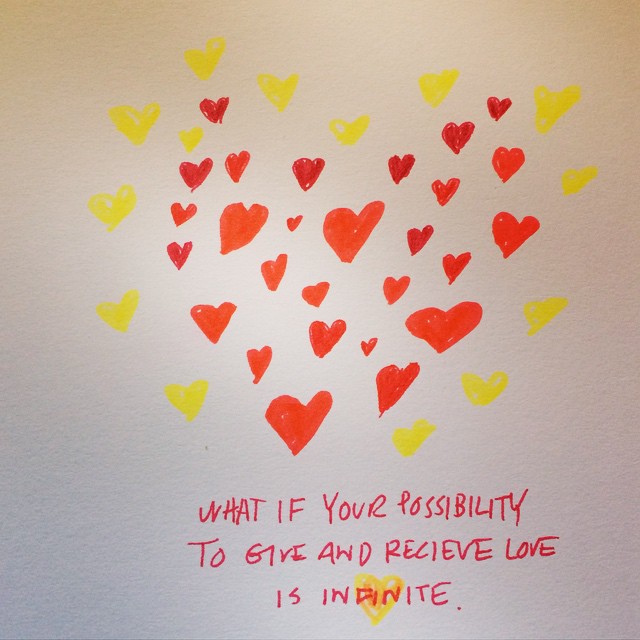 WHAT IF YOUR POSSIBILITY
TO GIVE AND RECIEVE LOVE
IS INFINITE.